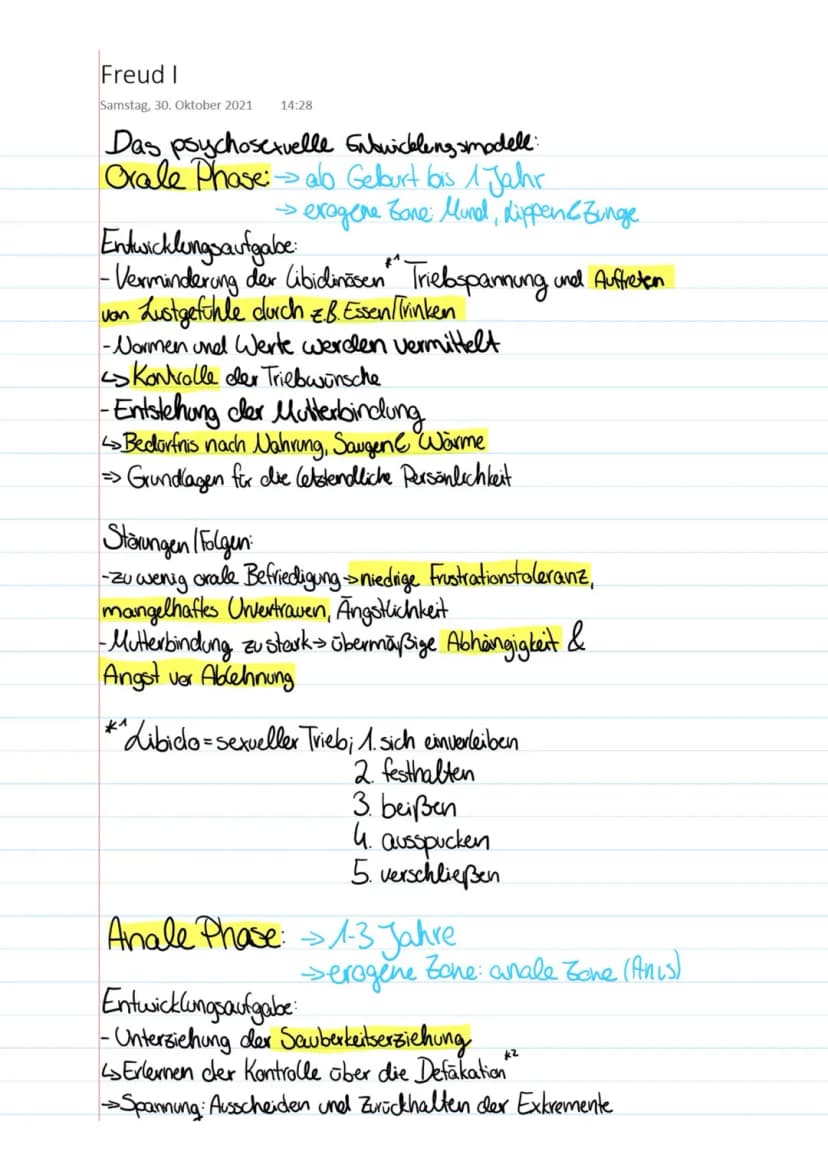 Freud I
Samstag, 30. Oktober 2021 14:28
Das psychosexuelle Entwicklungsmodell:
Orale Phase: → ab Geburt bis 1 Jahr
→ erogene Zone: Mund, Lippen & Zunge
Entwicklungsaufgabe:
- Verminderung der libidinösen *1 Triebspannung und Auftreten
von Lustgefühle durch z.B. Essen/Trinken
- Normen und Werte werden vermittelt
↳ Kontrolle der Triebwünsche
- Entstehung der Mutterbindung
↳ Bedürfnis nach Nahrung, Saugen & Wärme
⇒ Grundlagen für die letztendliche Persönlichkeit
Störungen/Folgen:
- zu wenig orale Befriedigung → niedrige Frustrationstoleranz,
mangelhaftes Urvertrauen, Ängstlichkeit
- Mutterbindung zu stark → übermäßige Abhängigkeit &
Angst vor Ablehnung
*1 Libido = sexueller Trieb; 1. sich einverleiben
2. festhalten
3. beißen
4. ausspucken
5. verschließen
Anale Phase: → 1-3 Jahre
→ erogene Zone: anale Zone (Anus)
Entwicklungsaufgabe:
- Unterziehung der Sauberkeitserziehung
↳ Erlernen der Kontrolle über die Defäkation *2
→ Spannung: Ausscheiden und Zurückhalten der Exkremente